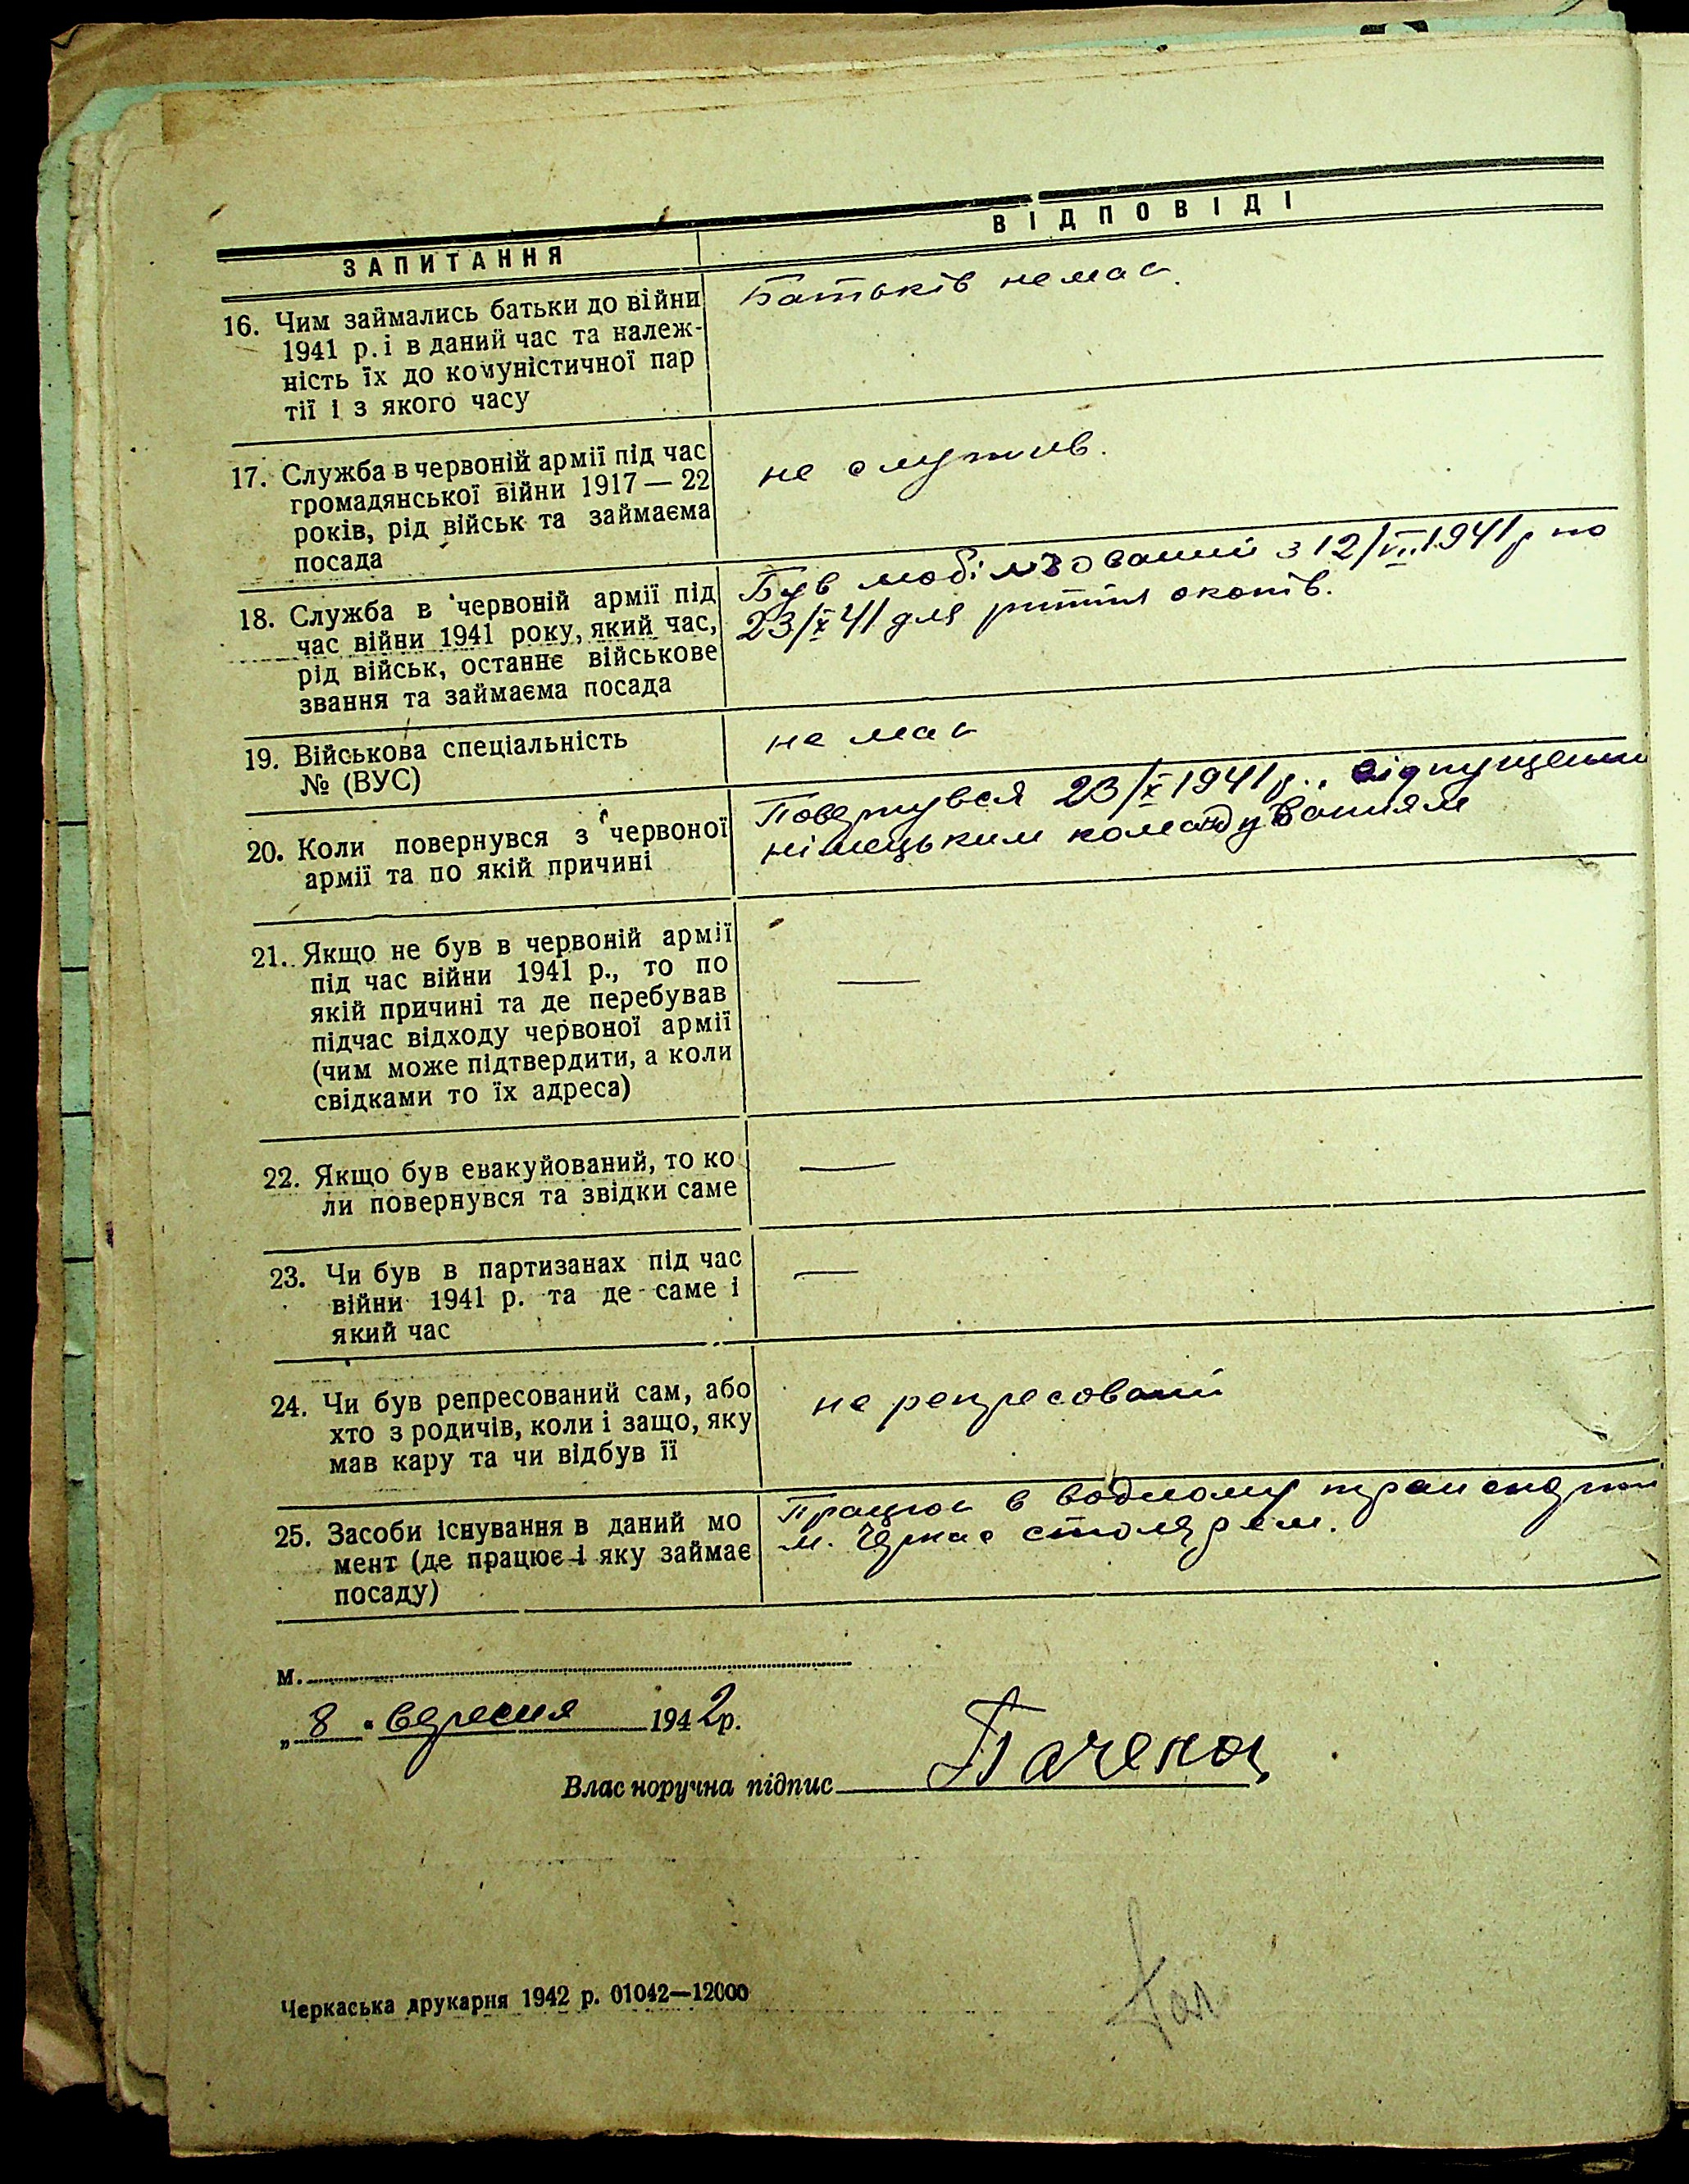 ЗАПИТАННЯ
ВІДПОВІДІ
16. Чим займались батьки до війни
1941 р. і в даний час та належ-
ність їх до комуністичної пар
тії і з якого часу
Батьків немає.
17. Служба в червоній армії під час
громадянської війни 1917 — 22
років, рід військ та займаєма
посада
не служив.
18. Служба в червоній армії під
час війни 1941 року, який час,
рід військ, останнє військове
звання та займаєма посада
Був мобілізований з 12/VII 1941 р по
23/IX 41 для риття окопів.
19. Військова спеціальність
№ (ВУС)
не має
20. Коли повернувся з червоної
армії та по якій причині
Повернувся 23/IX 1941 р., відпущений
німецьким командуванням
21. Якщо не був в червоній армії
під час війни 1941 р., то по
якій причині та де перебував
підчас відходу червоної армії
(чим може підтвердити, а коли
свідками то їх адреса)
—
22. Якщо був евакуйований, то ко
ли повернувся та звідки саме
—
23. Чи був в партизанах під час
війни 1941 р. та де саме і
який час
—
24. Чи був репресований сам, або
хто з родичів, коли і защо, яку
мав кару та чи відбув її
не репресований
25. Засоби існування в даний мо
мент (де працює і яку займає
посаду)
Працює в водному транспорті
м. Черкас столяром.
м.
„8 " вересня 1942 р.
Власноручна підпис
Черкаська друкарня 1942 р. 01042—12000